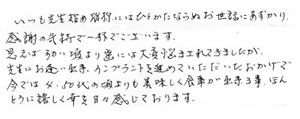 いつも先生様め皆様にはひとかたならぬお世話にあずかり、
感謝の気持で一杯でございます。
思えば わかい頃より歯には大変悩まされてきましたが、
先生にお逢い出来、インプラントを進めていただいたおかげで
今では 4、50代の頃よりも美味しく食事が出来る事、ほん
とうに嬉しく幸を日々感じております。